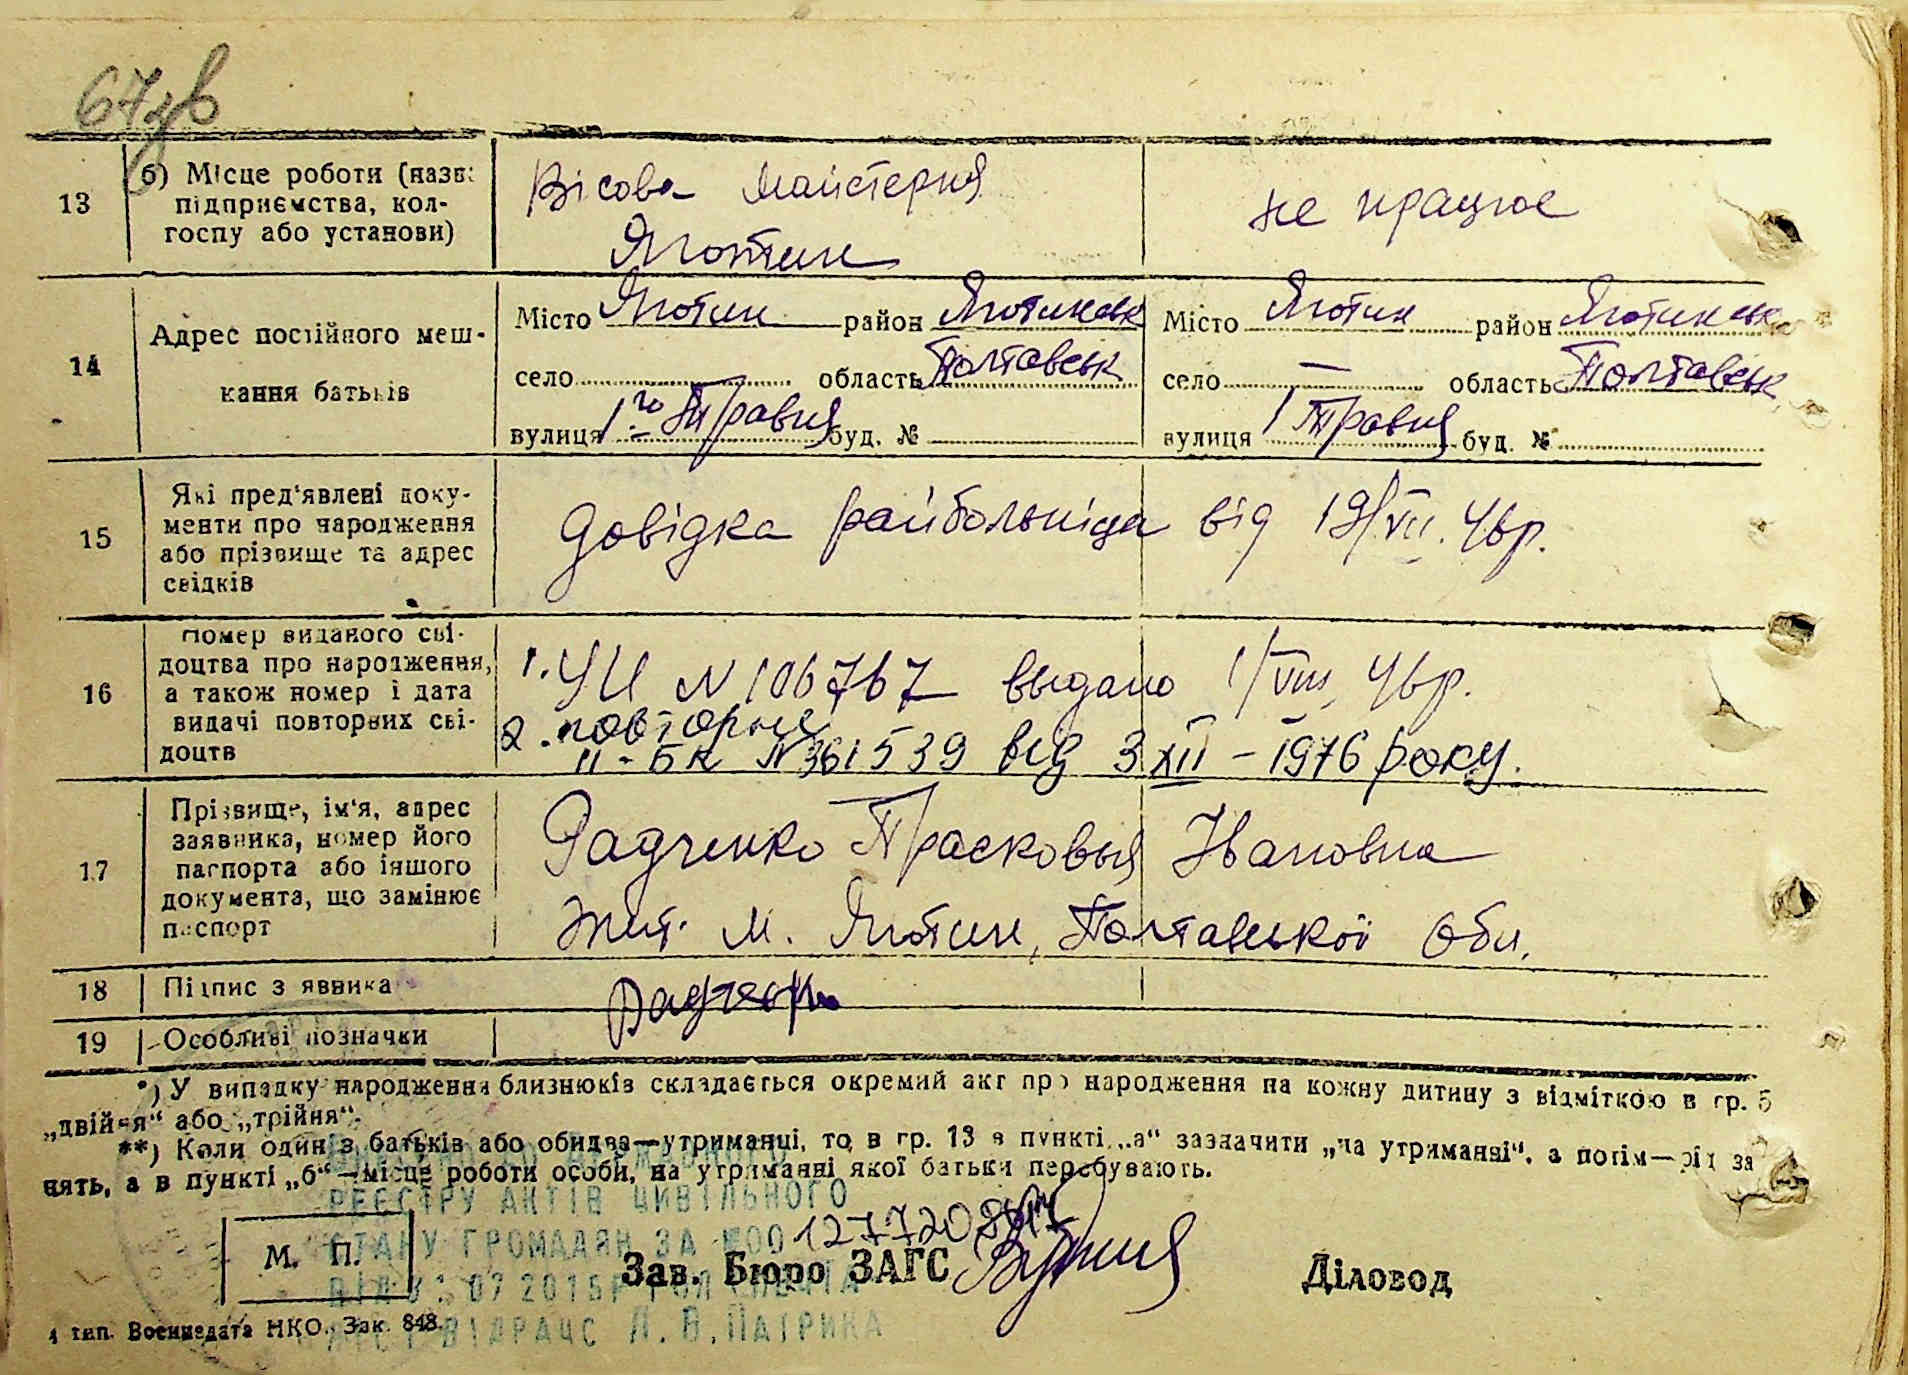 67зв
13 б) Місце роботи (назва
підприємства, кол-
госпу або установи)
Вісова майстерня
Яготин
не працює
14 Адрес постійного меш-
кання батьків
Місто Яготин район Яготинськ
село область Полтавськ
вулиця 1го Травня буд. №
Місто Яготин район Яготинськ
село — область Полтавськ
вулиця 1 Травня буд. №
15 Які пред'явлені доку-
менти про народження
або прізвище та адрес
свідків
Довідка райбольніци від 19/VII. 46р.
16 Номер виданого сві-
доцтва про народження,
а також номер і дата
видачі повторних сві-
доцтв
1. УИ N 106767 выдано 1/VIII 46р.
2. повторне
II-БК N 361539 від 3 XII - 1976 року.
17 Прізвище, ім'я, адрес
заявника, номер його
паспорта або іншого
документа, що замінює
паспорт
Радченко Прасковья Івановна
Жит. м. Яготин, Полтавської обл.
18 Підпис заявника
19 Особливі позначки
*) У випадку народження близнюків складається окремий акт про народження на кожну дитину з відміткою в гр. 5
„двійня“ або „трійня“.
**) Коли один з батьків або обидва—утриманці, то в гр. 13 в пункті „а“ зазначити „на утриманні“, а потім—рід за
нять, а в пункті „б“—місце роботи особи, на утриманні якої батьки перебувають.
РЕЄСТРУ АКТІВ ЦИВІЛЬНОГО
СТАНУ ГРОМАДЯН ЗА №00
М. П.
Зав. Бюро ЗАГС
Діловод
4 тип. Воениздата НКО. Зак. 848.
Л.В.ПАТРИКА